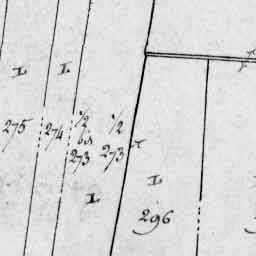 L L
275 274 1/2 bis 273 1/2 273
L L
296